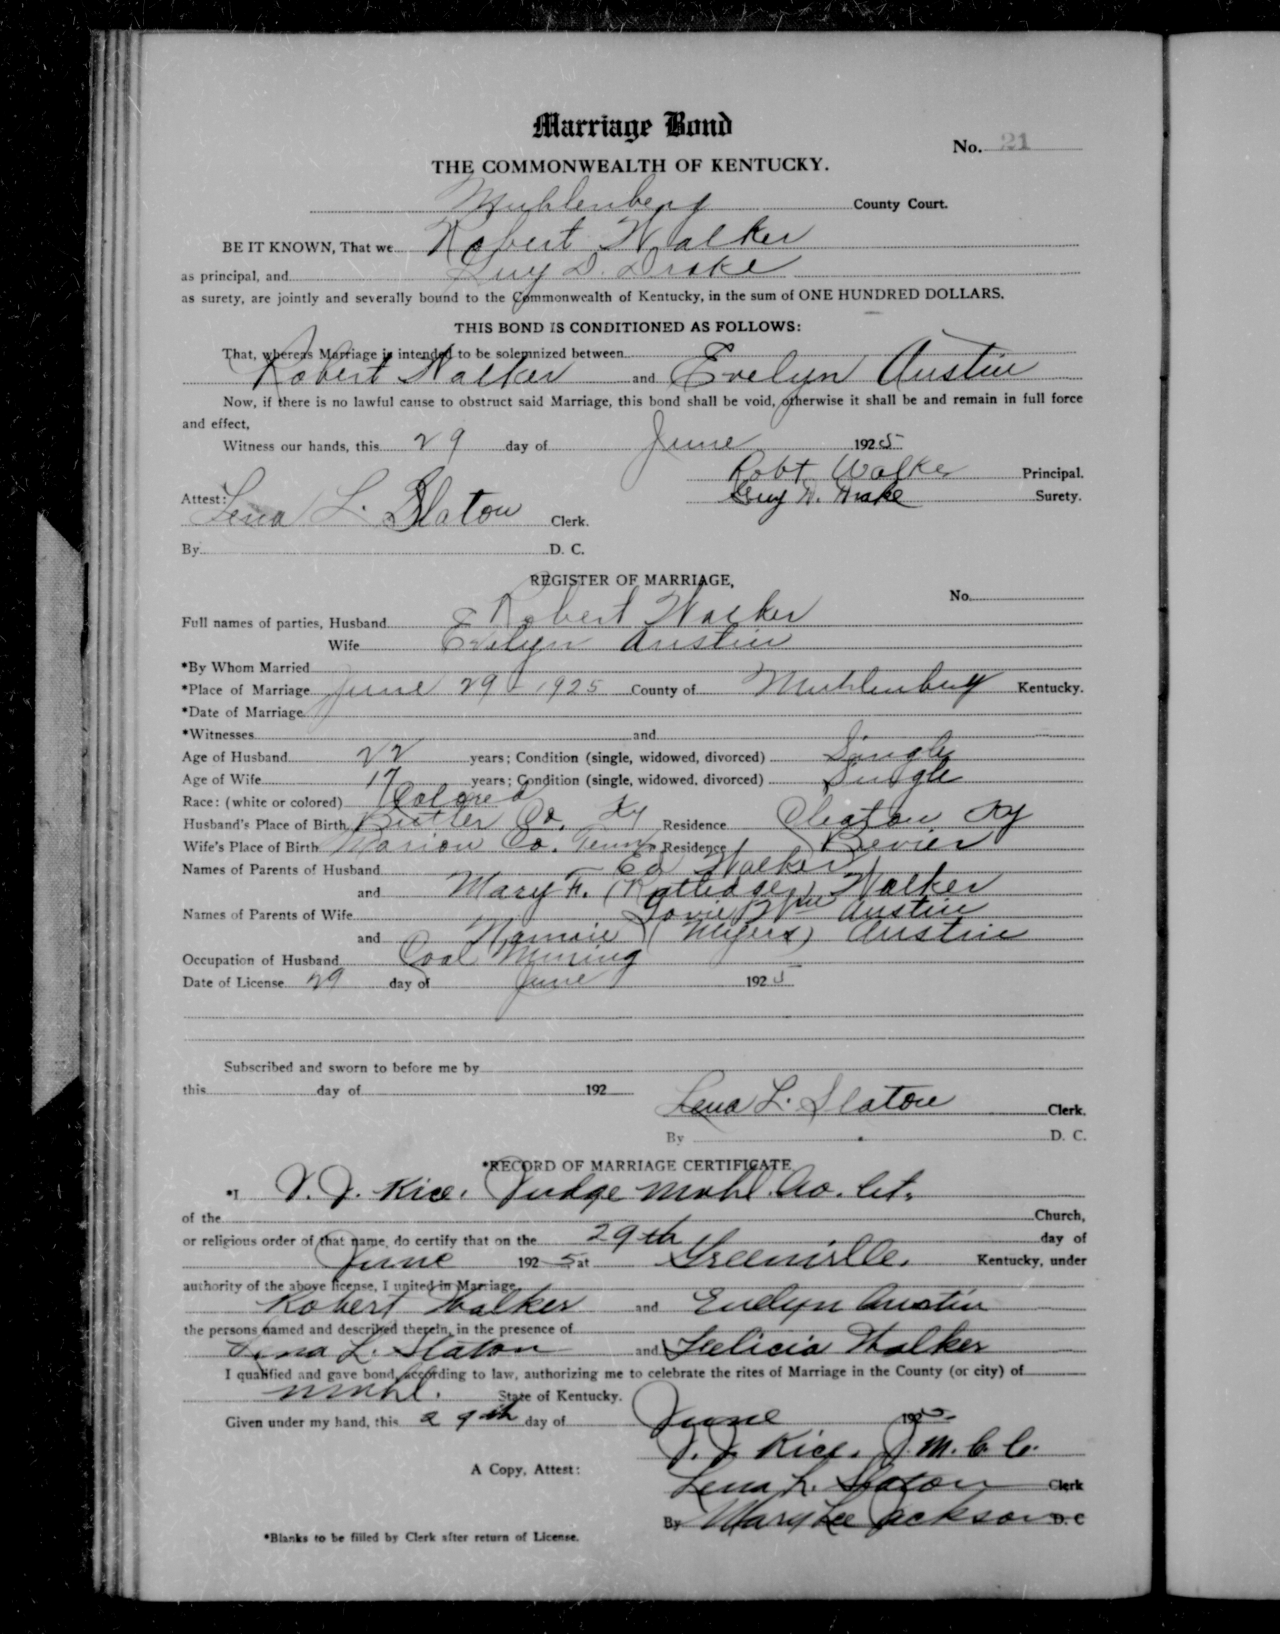 Marriage Bond
No. 21
THE COMMONWEALTH OF KENTUCKY.
Muhlenberg County Court.
BE IT KNOWN, That we Robert Walker
as principal, and Guy D. Drake
as surety, are jointly and severally bound to the Commonwealth of Kentucky, in the sum of ONE HUNDRED DOLLARS.
THIS BOND IS CONDITIONED AS FOLLOWS:
That, whereas Marriage is intended to be solemnized between
Robert Walker and Evelyn Austin
Now, if there is no lawful cause to obstruct said Marriage, this bond shall be void, otherwise it shall be and remain in full force
and effect,
Witness our hands, this 29 day of June 1925
Robt Walker Principal.
Guy D. Drake Surety.
Attest: Lena L. Slaton Clerk.
By D. C.
REGISTER OF MARRIAGE,
No.
Full names of parties, Husband Robert Walker
Wife Evelyn Austin
*By Whom Married
*Place of Marriage June 29 - 1925 County of Muhlenberg Kentucky.
*Date of Marriage
*Witnesses and
Age of Husband 22 years; Condition (single, widowed, divorced) Single
Age of Wife 17 years; Condition (single, widowed, divorced) Single
Race: (white or colored) Colored
Husband's Place of Birth Butler Co. Ky Residence Cleaton Ky
Wife's Place of Birth Marion Co. Tenn Residence Bevier
Names of Parents of Husband Ed Walker
and Mary F. Walker
Names of Parents of Wife Austin
and (Myers) Austin
Occupation of Husband Coal Mining
Date of License 29 day of June 1925
Subscribed and sworn to before me by
this day of 192
Lena L. Slaton Clerk.
By D. C.
*RECORD OF MARRIAGE CERTIFICATE
*I Rice. Judge Muhl. Co. Ct.
of the Church,
or religious order of that name, do certify that on the 29th day of
June 1925 at Greenville. Kentucky, under
authority of the above license, I united in Marriage
Robert Walker and Evelyn Austin
the persons named and described therein, in the presence of
Lena L. Slaton and Felicia Walker
I qualified and gave bond, according to law, authorizing me to celebrate the rites of Marriage in the County (or city) of
Muhl. State of Kentucky.
Given under my hand, this 29th day of June 1925.
Rice. J. M. C. C.
A Copy, Attest:
Lena L. Slaton Clerk
By Mary Lee Jackson D. C
*Blanks to be filled by Clerk after return of License.